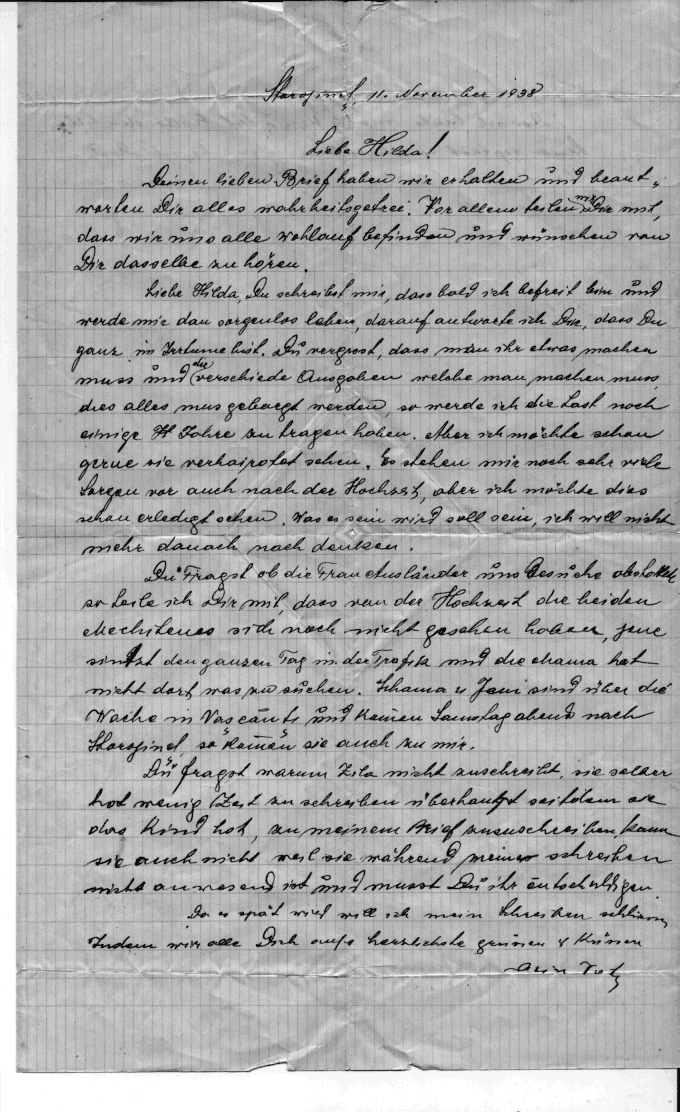 Storojineț, 11. November 1938
Liebe Hilda!
Deinen lieben Brief haben wir erhalten und beant-
worten Dir alles wahrheitsgetrei. Vor allem teilen wir Dir mit,
dass wir uns alle wohlauf befinden und wünschen von
Dir dasselbe zu hören.
Liebe Hilda, Du schreibst mir, dass bald ich befreit bin und
werde mir dan sorgenlos leben, darauf antworte ich Dir, dass Du
ganz im Irrtume bist. Du vergisst, dass man ihr etwas machen
muss und die verschiede Ausgaben welche man machen muss
dies alles mus geborgt werden, so werde ich die Last noch
einige Jahre zu tragen haben. Aber ich möchte schon
gerne sie verhairatet sehen. Es stehen mir noch sehr viele
Sorgen vor auch nach der Hochzeit, aber ich möchte dies
schon erledigt sehen. Was es sein wird soll sein, ich will nicht
mehr danach nach denken.
Du Fragst ob die Frau Ausländer uns Besuche
so teile ich Dir mit, dass von der Hochzeit die beiden
sich noch nicht gesehen haben, jene
sintzt den ganzen Tag in der Trafik und die Mama hat
nicht dort was zu suchen. Schama u Jeni sind über die
Woche in Vascăuți und komen Samstag abend nach
Storojineț, so komen sie auch zu mir.
Du fragst warum Zila nicht zuschreibt, sie selber
hat wenig Zeit zu schreiben überhaupt seitdem sie
das Kind hat, zu meinem Brief zuzuschreiben kann
sie auch nicht weil sie während meines schreiben
nicht anwesend ist und musst Du ihr entschuldigen
Da es spät wird will ich mein Schreiben schliessen
Indem wir alle Dich aufs herzlichste grüssen & Küssen
Dein Vater